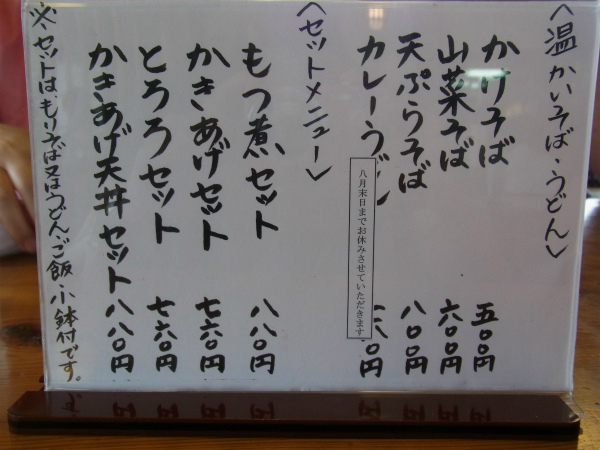 〈温かいそば・うどん〉
かけそば 五〇〇円
山菜そば 六〇〇円
天ぷらそば 八〇〇円
カレーうどん 〇円
八月末日までお休みさせていただきます
〈セットメニュー〉
もつ煮セット 八八〇円
かきあげセット 七六〇円
とろろセット 七六〇円
かきあげ天丼セット 八八〇円
※セットは、もりそば又はうどん・ご飯・小鉢付です。